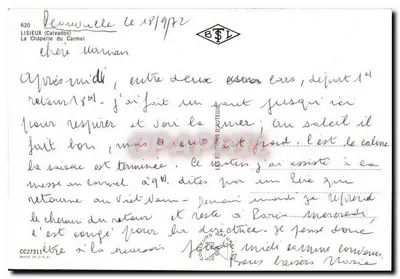 Deauville le 18/9/72
620
LISIEUX (Calvados)
La Chapelle du Carmel
BSL
chère maman
Après midi, entre deux cars, départ 1h
retour 18h - j'ai fait un saut jusqu'ici
pour respirer et voir la mer; au soleil il
fait bon, mais le vent est froid. C'est le calme
la saison est terminée. Ce matin j'ai assisté à la
messe au carmel à 9h dites par un père qui
retourne au Viet-Nam - demain mardi je reprend
le chemin du retour et reste à Paris mercredi,
c'est congé pour la directrice je pense donc
être à la maison jeudi midi comme convenu.
Bons baisers Marie
LES EDITIONS D'ART
CC27311
MADE IN